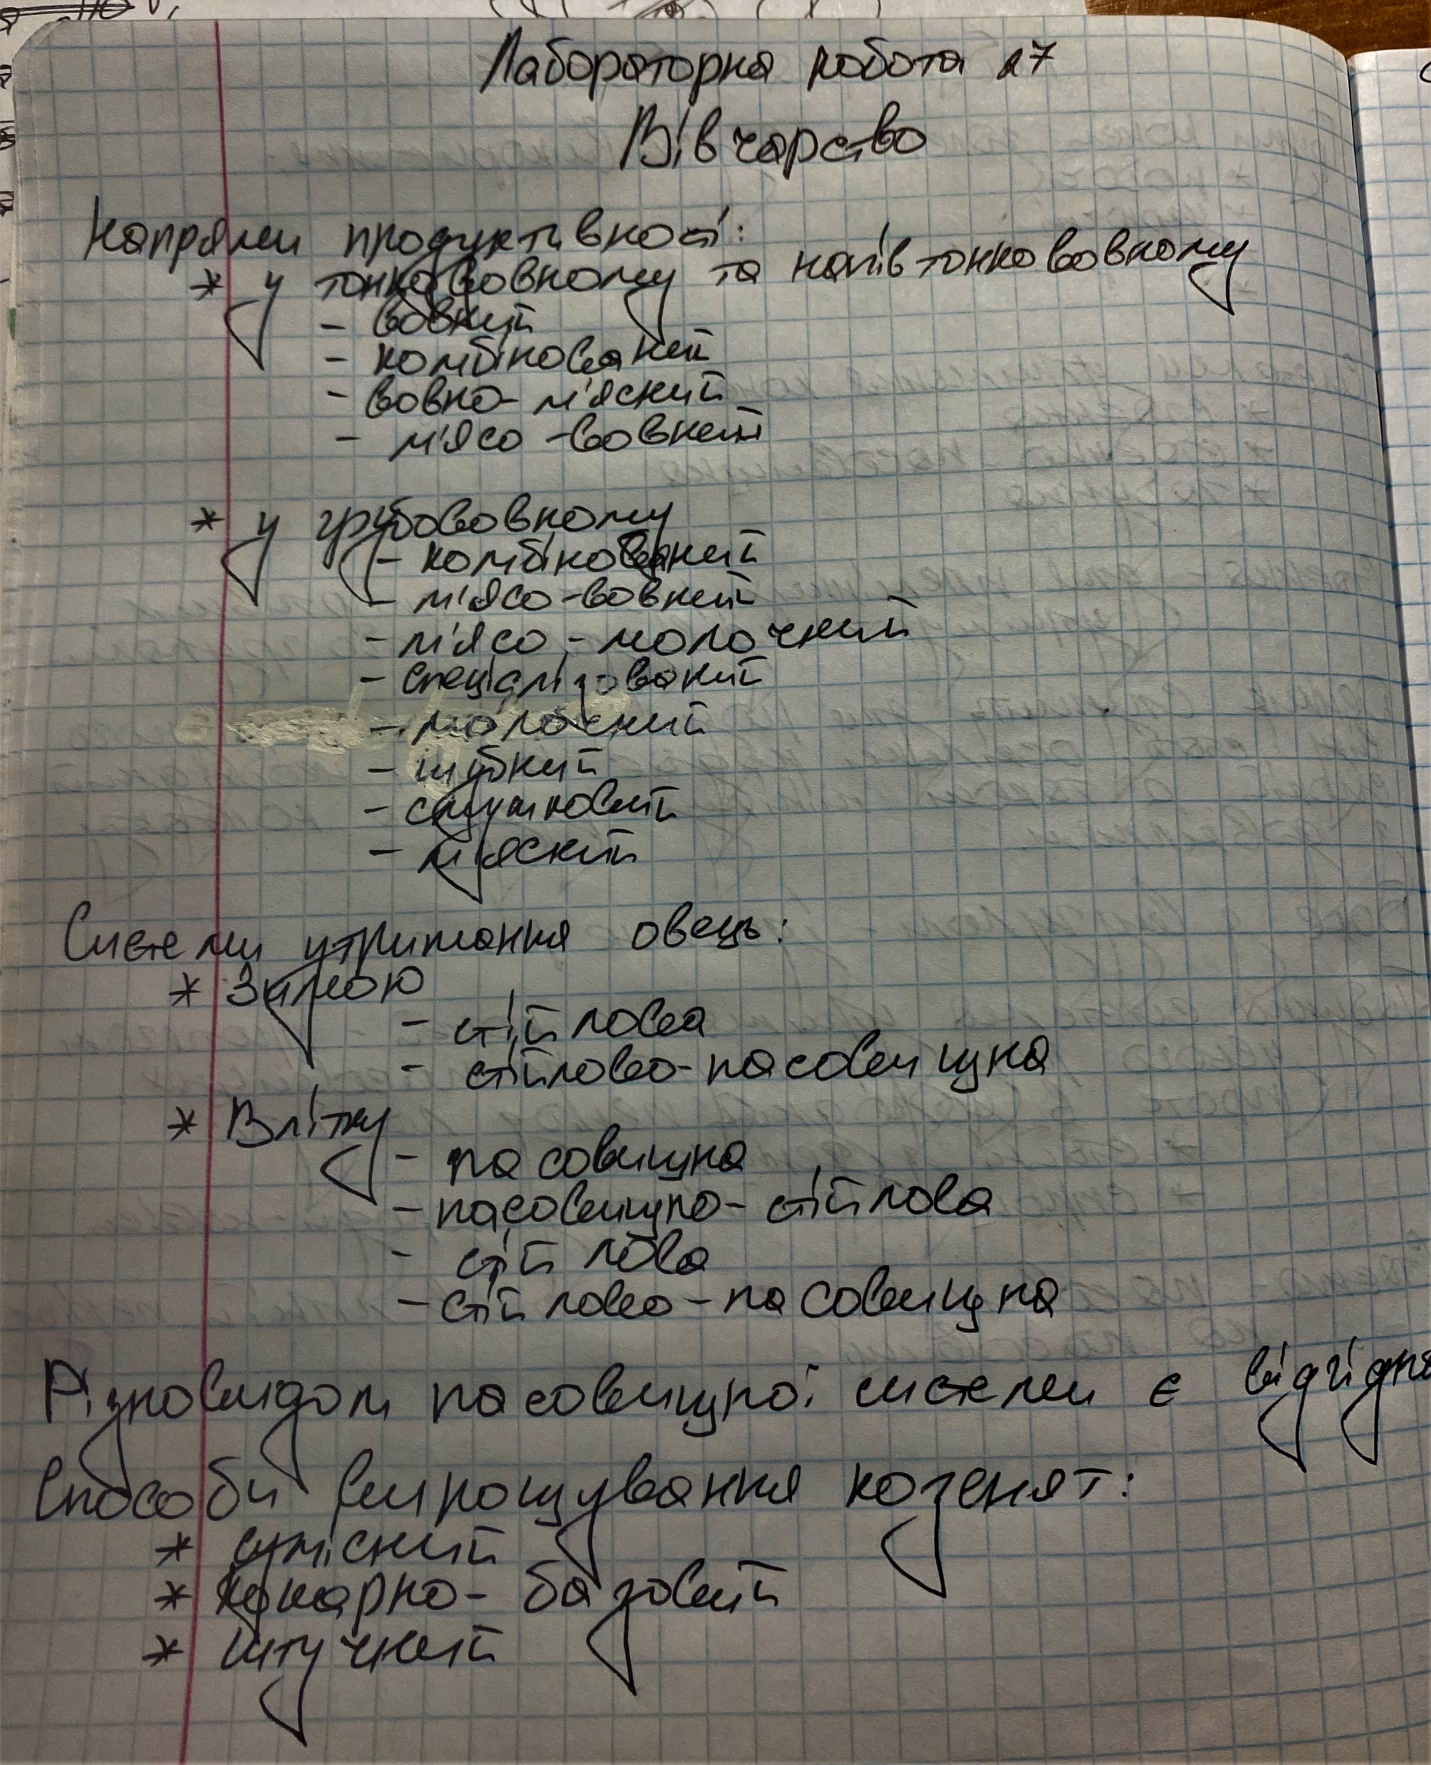 Лабораторна робота 27
Вівчарство
Напрями продуктивності:
* у тонкововному та напівтонкововному
- вовний
- комбінований
- вовно-м'ясний
- м'ясо-вовний
* у грубововному
- комбінований
- м'ясо-вовний
- м'ясо-молочний
- спеціалізований
- молочний
- шубний
- смушковий
- м'ясний
Системи утримання овець:
* Зимою
- стійлова
- стійлово-пасовищна
* Влітку
- пасовищна
- пасовищно-стійлова
- стійлова
- стійлово-пасовищна
Різновидом пасовищної системи є відгідна
Способи вирощування козенят:
* сумісний
* кошарно-базовий
* штучний